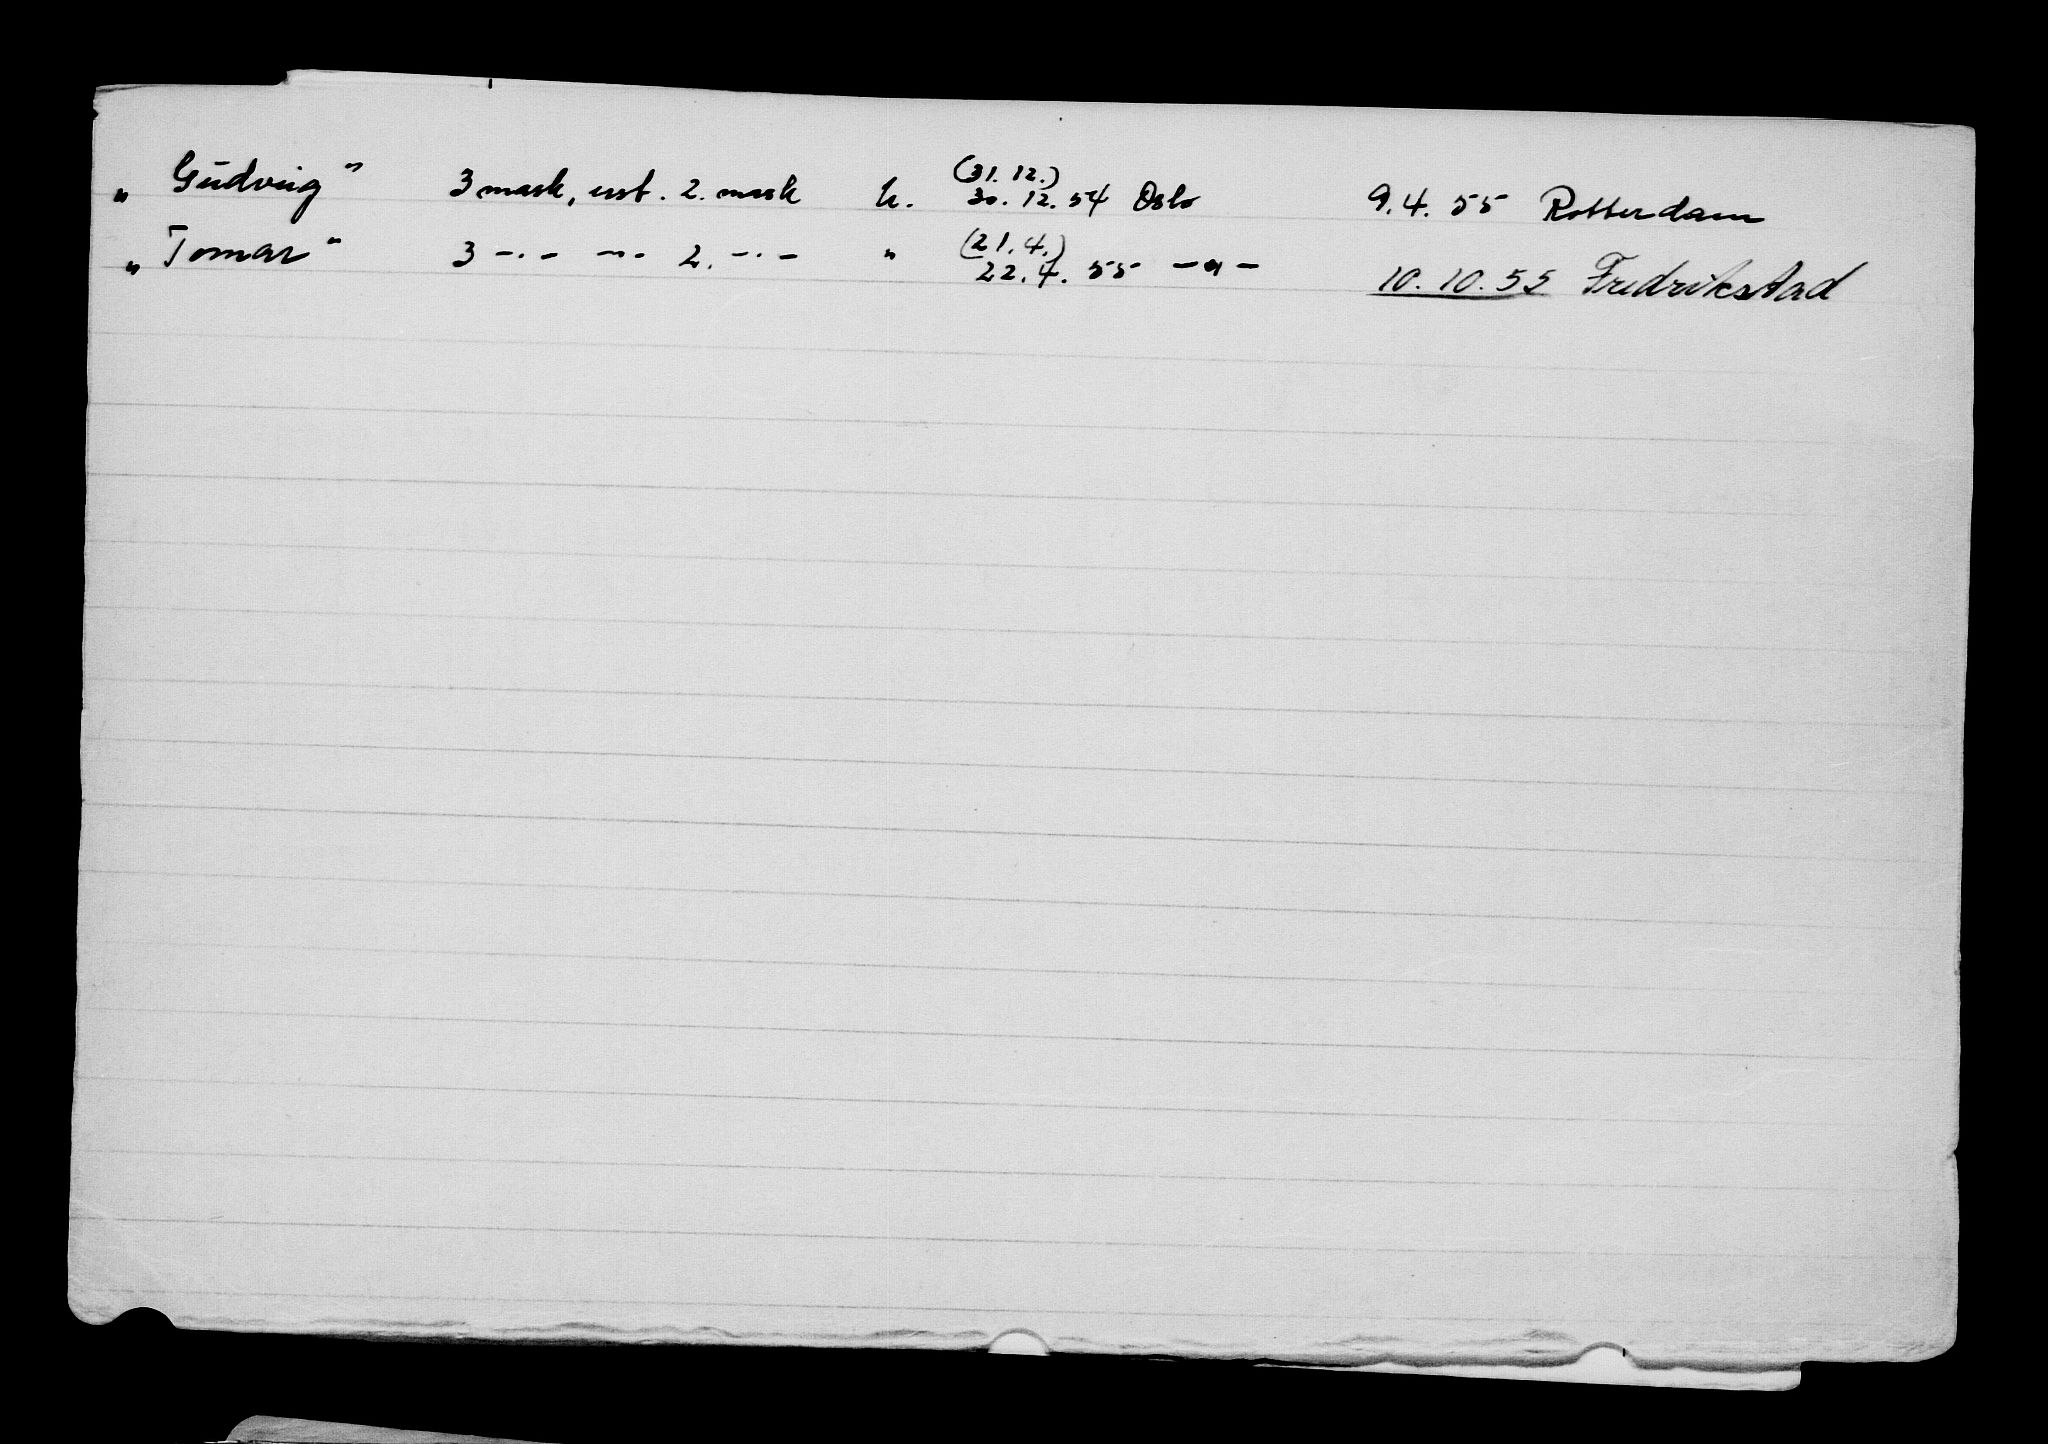 „ Gudveig “ 3 mask, asst. 2. mask h. (31.12.) 30.12.54 Oslo 9.4.55 Rotterdam
„ Tomar “ 3 -.- -..- 2. -.- " (21.4.) 22.4.55 -"- 10.10.55 Fredrikstad